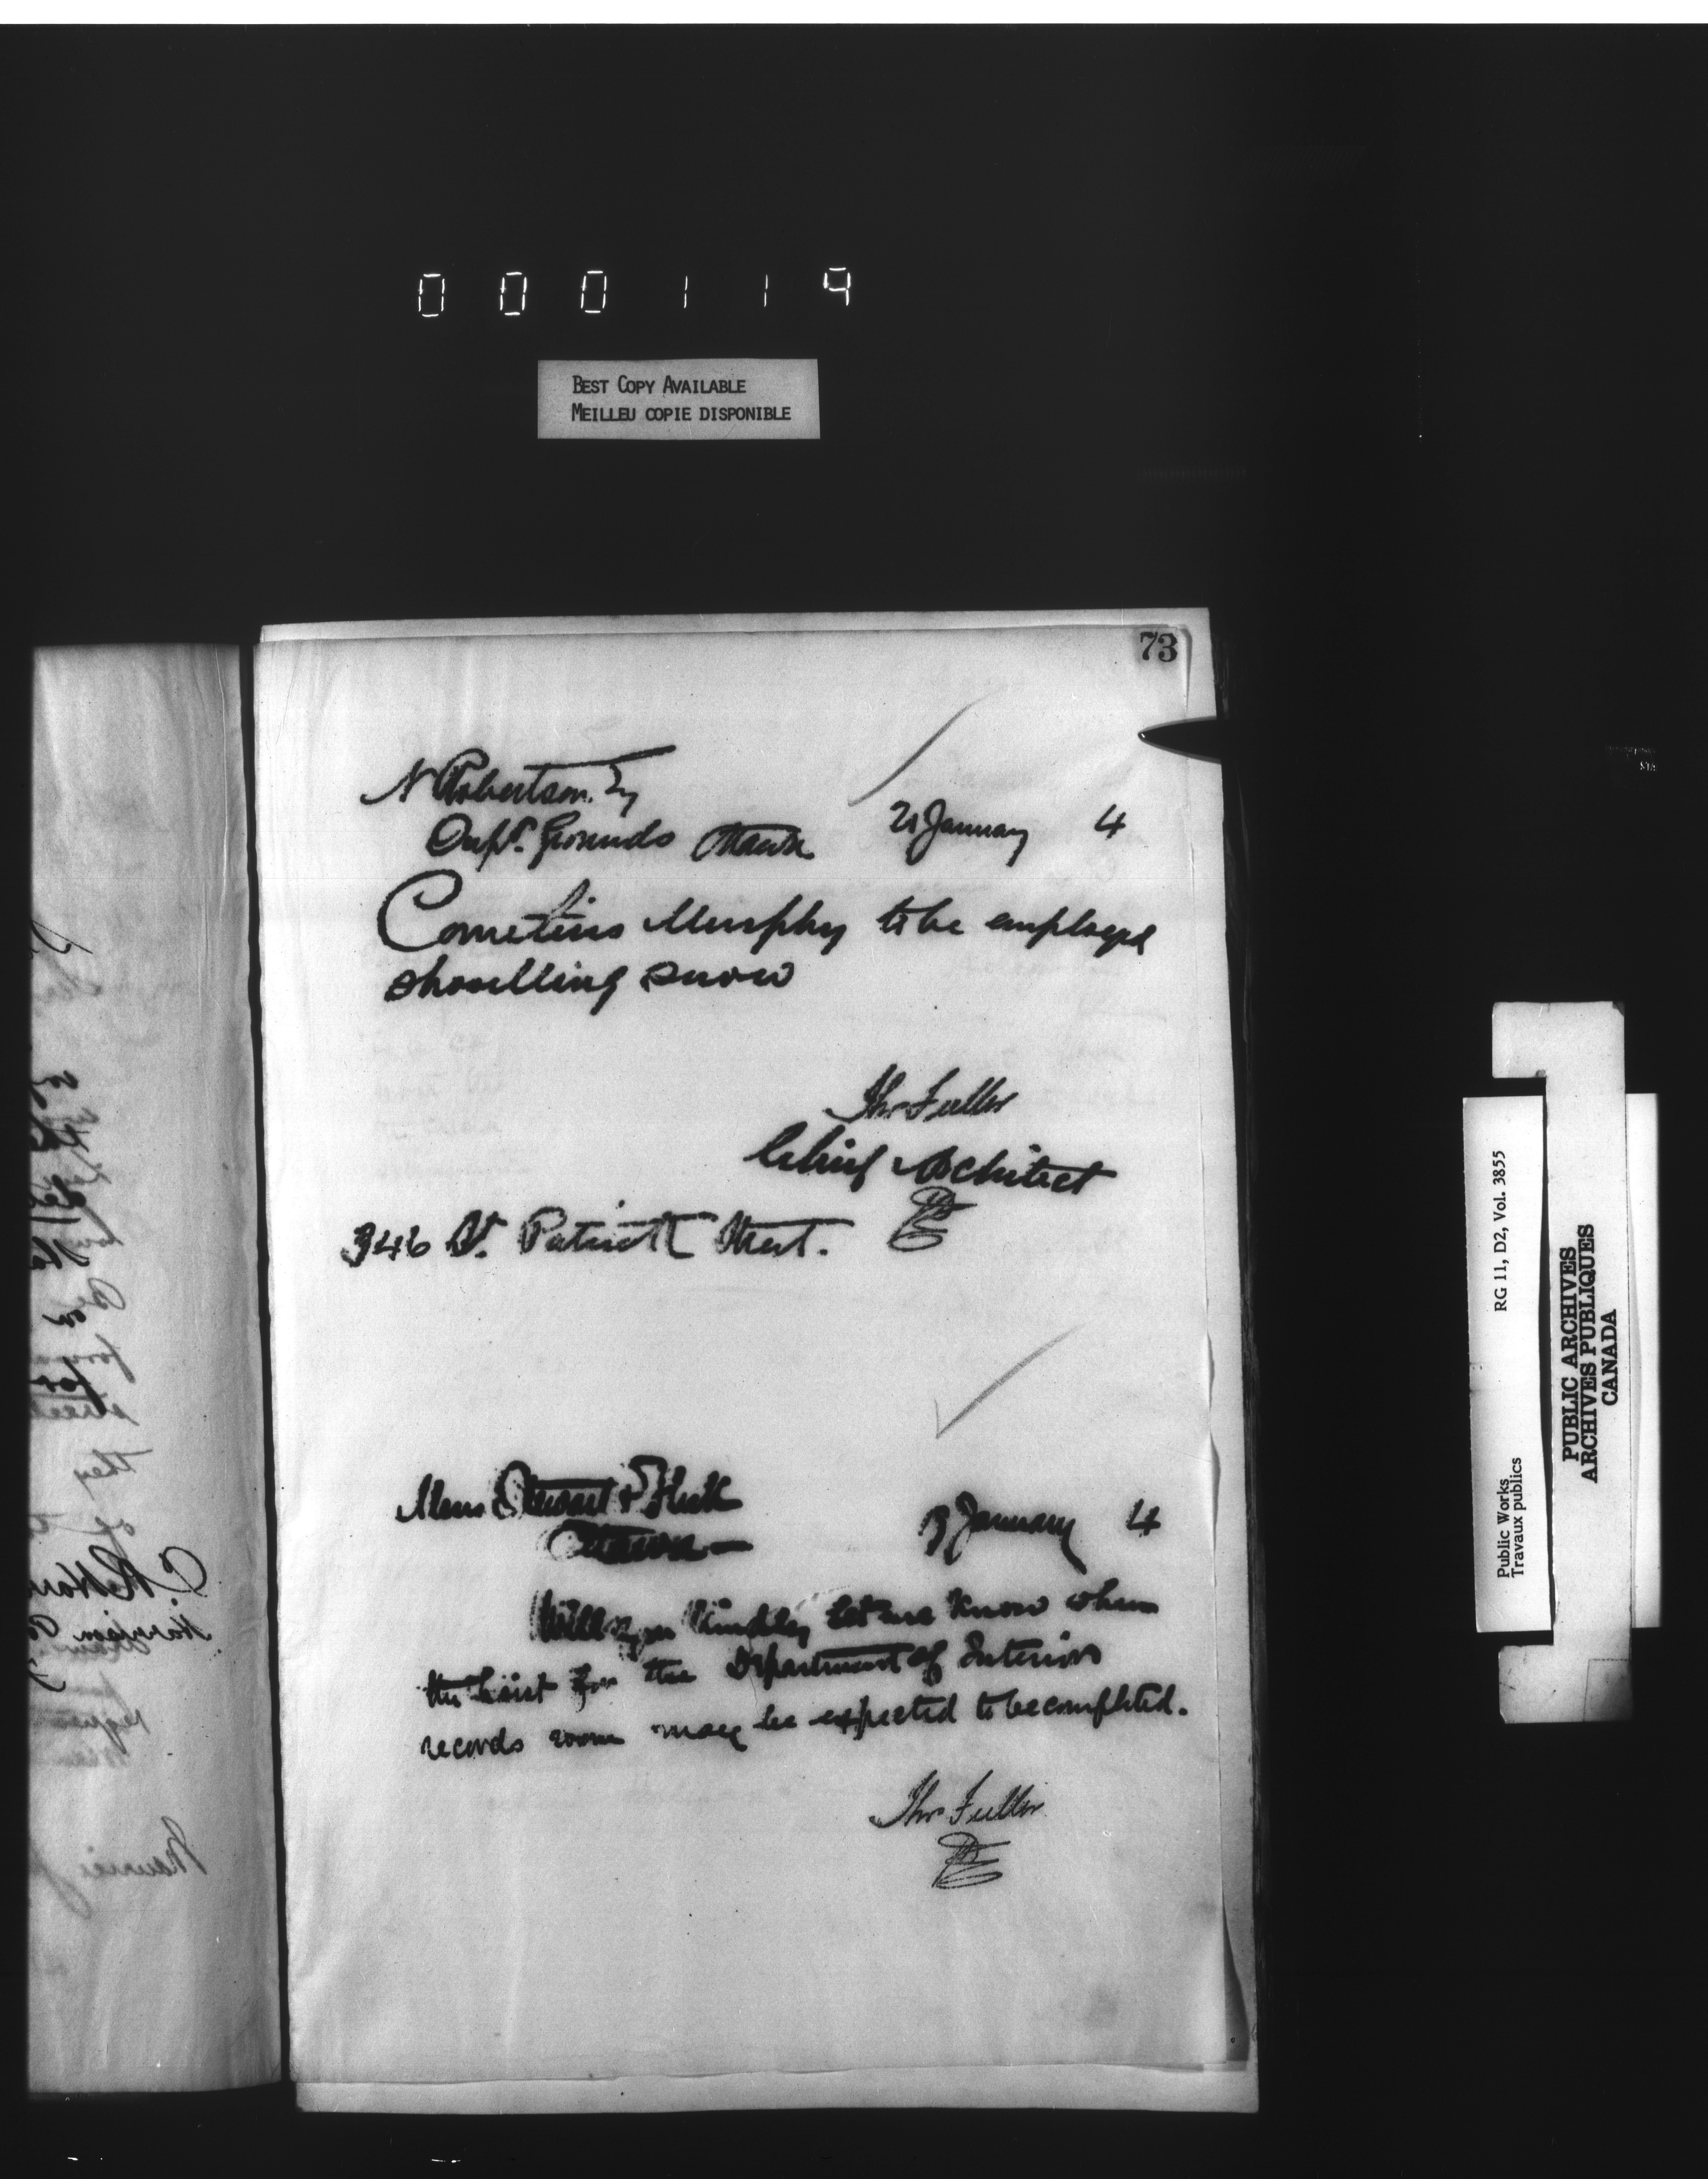 000119
BEST COPY AVAILABLE
MEILLEU COPIE DISPONIBLE
73
N Robertson Esq
Supt. Grounds Ottawa 21 January 4
Cornelius Murphy to be employed
shovelling snow
Thos Fuller
Chief Architect
346 St. Patrick Street.
Messrs Stewart &
Ottawa January 4
Will you kindly let me know when
the hoist for the Department of Interior
records room may be expected to be completed.
Thos Fuller
RG 11, D2, Vol. 3855
Public Works
Travaux publics
PUBLIC ARCHIVES
ARCHIVES PUBLIQUES
CANADA